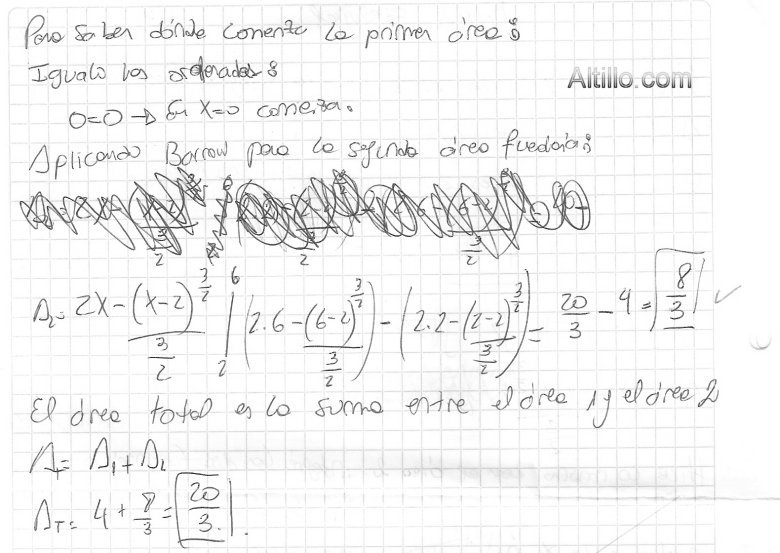 Para saber dónde comienza la primer área:
Altillo.com
Igualo las ordenadas:
0=0 → En x=0 comienza.
Aplicando Barrow para la segunda área quedaría:
A₂= 2x-(x-2)^(3/2)/(3/2) |₂⁶ (2.6-(6-2)^(3/2)/(3/2)) - (2.2-(2-2)^(3/2)/(3/2)) = 20/3 - 4 = 8/3 ✓
El área total es la suma entre el área 1 y el área 2
A_T= A₁+A₂
A_T= 4 + 8/3 = 20/3.